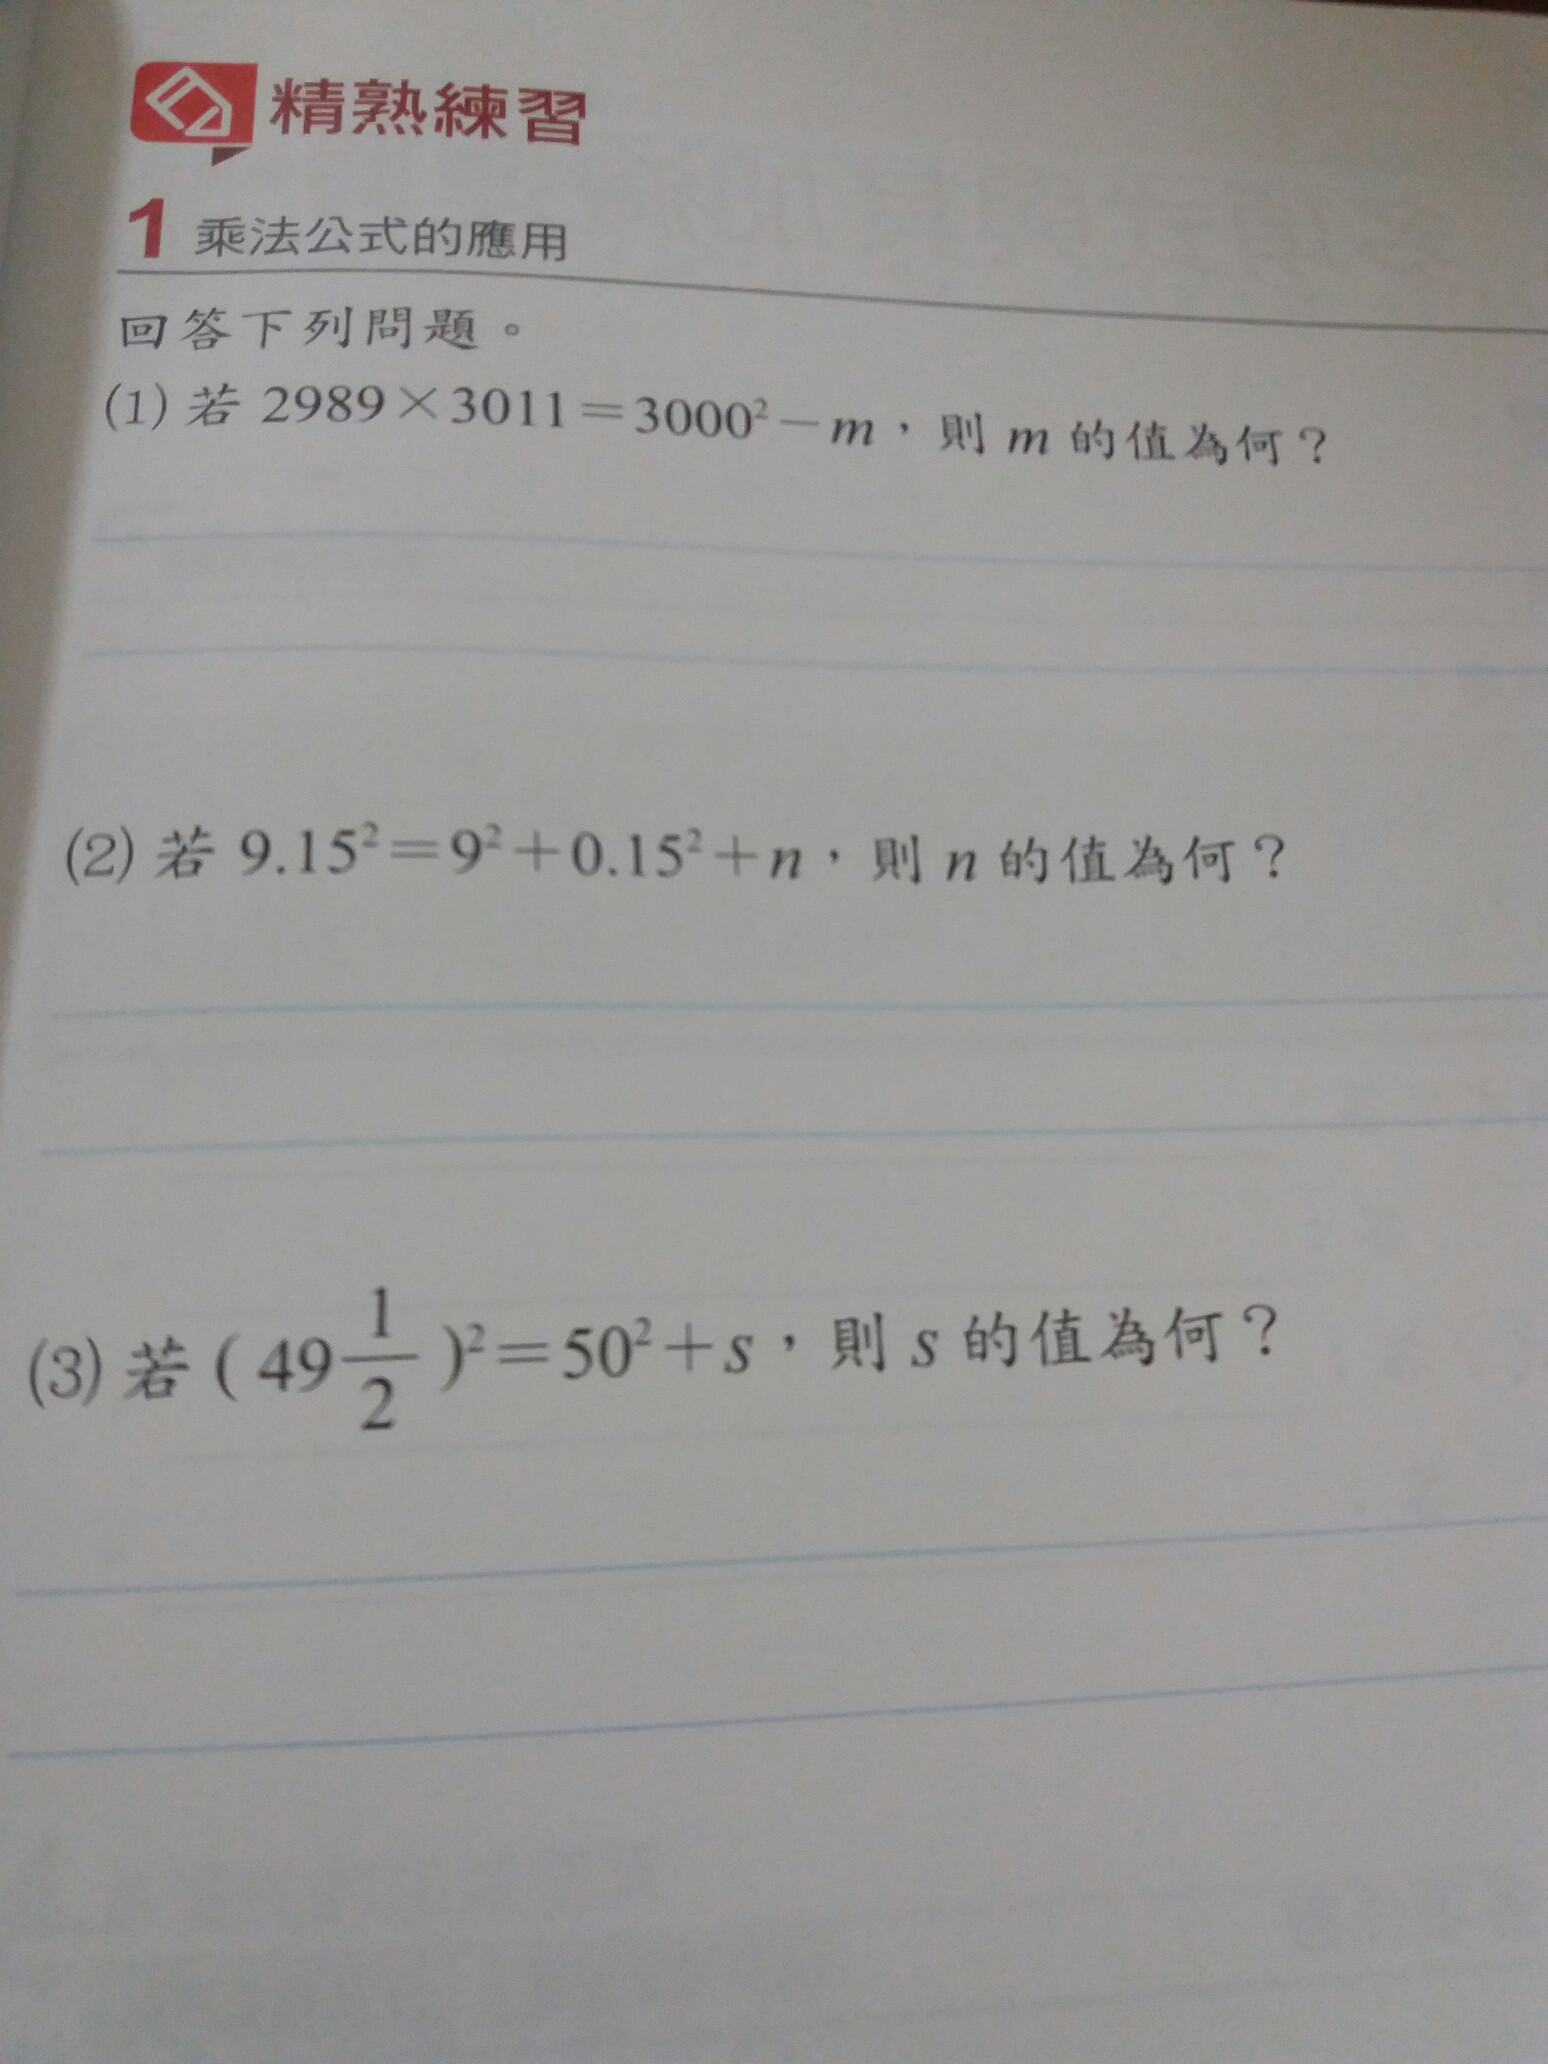 精熟練習
1 乘法公式的應用
回答下列問題。
(1) 若 2989×3011=3000²-m，則 m 的值為何？
(2) 若 9.15²=9²+0.15²+n，則 n 的值為何？
(3) 若 ( 49 1/2 )²=50²+s，則 s 的值為何？